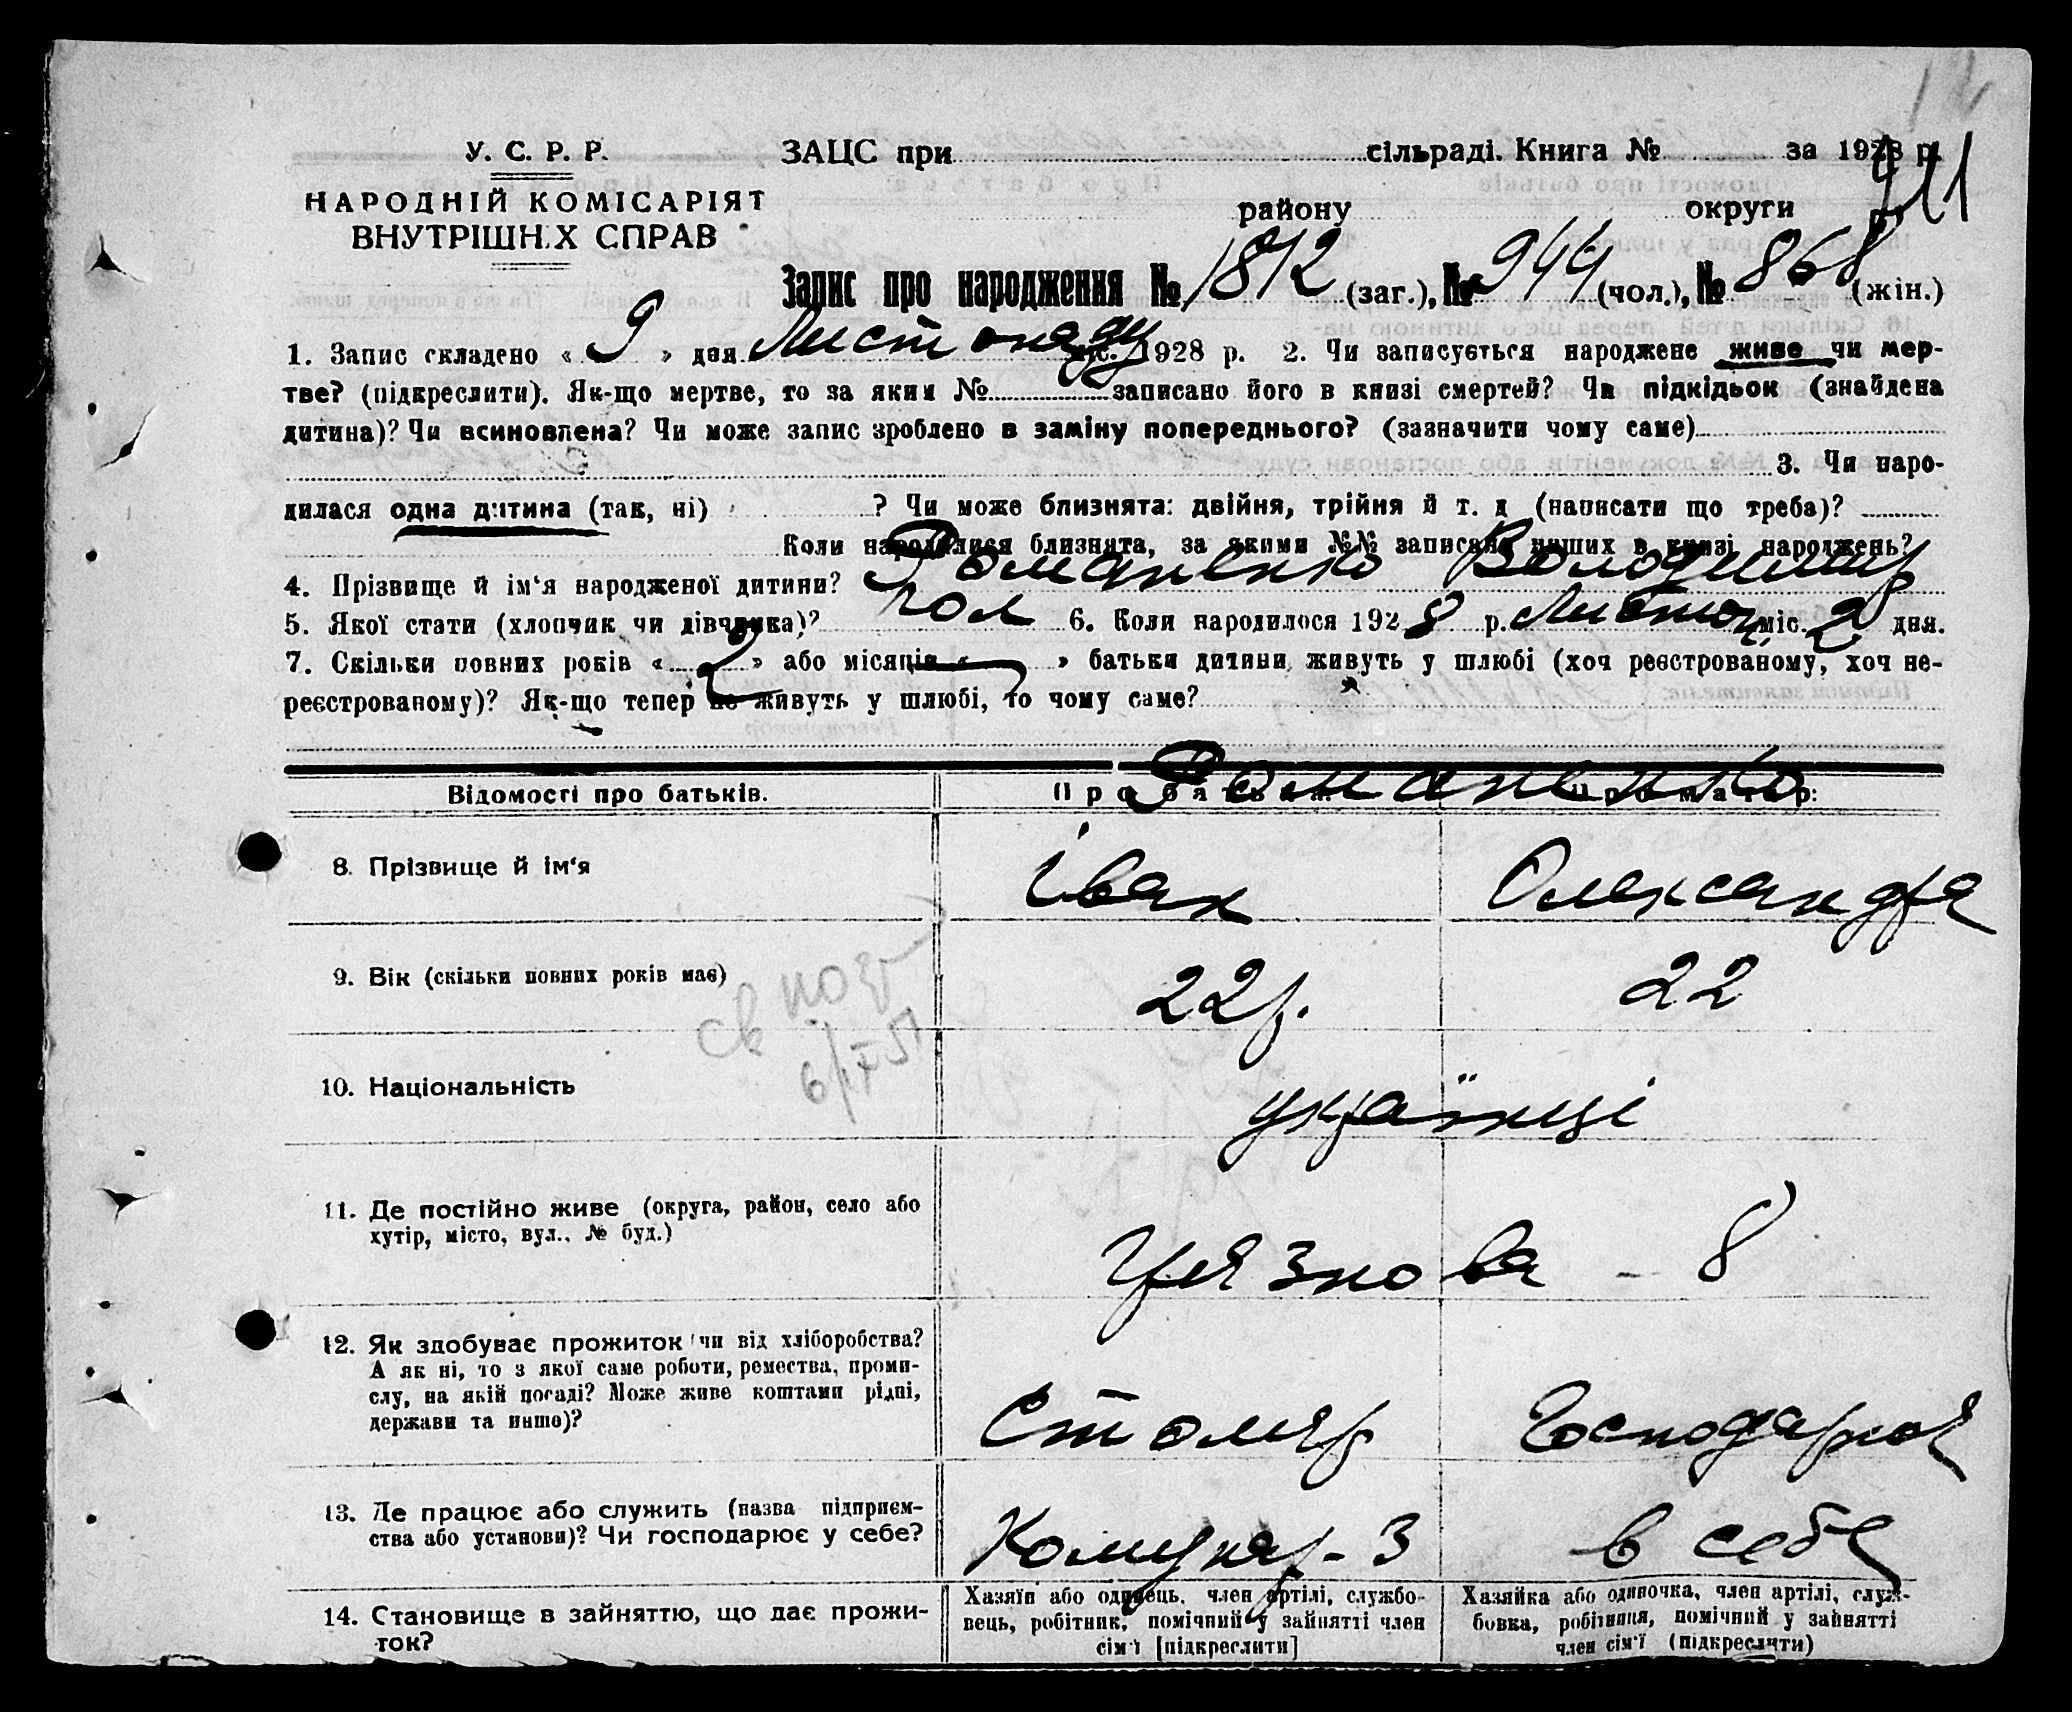 У. С. Р. Р.
НАРОДНІЙ КОМІСАРІЯТ
ВНУТРІШНІХ СПРАВ
ЗАЦС при сільраді. Книга № за 1928 р.
району округи
Запис про народження № 1812 (заг.), № 944 (чол.), № 868 (жін.)
1. Запис складено « 9 » дня Листопаду міс. 1928 р. 2. Чи записується народжене живе чи мер-
тве? (підкреслити). Як-що мертве, то за яким № записано його в книзі смертей? Чи підкідьок (знайдена
дитина)? Чи всиновлена? Чи може запис зроблено в заміну попереднього? (зазначити чому саме)
3. Чи наро-
дилася одна дитина (так, ні) ? Чи може близнята: двійня, трійня й т. д (написати що треба)?
Коли народилися близнята, за якими №№ записано инших в книзі народжень?
4. Прізвище й ім‘я народженої дитини? Романенко Володимир
5. Якої стати (хлопчик чи дівчинка)? чол 6. Коли народилося 1928 р. Листоп. міс. 2 дня.
7. Скільки повних років « 2 » або місяців « » батьки дитини живуть у шлюбі (хоч реєстрованому, хоч не-
реєстрованому)? Як-що тепер не живуть у шлюбі, то чому саме?
Відомості про батьків. Про батька: Про матір:
Романенко
8. Прізвище й ім‘я Іван Олександра
9. Вік (скільки повних років має) 22 р. 22
св
10. Національність українці
11. Де постійно живе (округа, район, село або
хутір, місто, вул., № буд.) – 8
12. Як здобуває прожиток чи від хліборобства?
А як ні, то з якої саме роботи, ремества, проми-
слу, на якій посаді? Може живе коштами рідні,
держави та иншо)? Столяр Господарює
13. Де працює або служить (назва підприєм-
ства або установи)? Чи господарює у себе? Комунар-3 в себе
14. Становище в зайняттю, що дає прожи-
ток?
Хазяїн або одинець, член артілі, службо-
вець, робітник, помічний у зайнятті член
сім‘ї [підкреслити]
Хазяйка або одиночка, член артілі, служ-
бовка, робітниця, помічний у зайнятті
член сім‘ї (підкреслити)